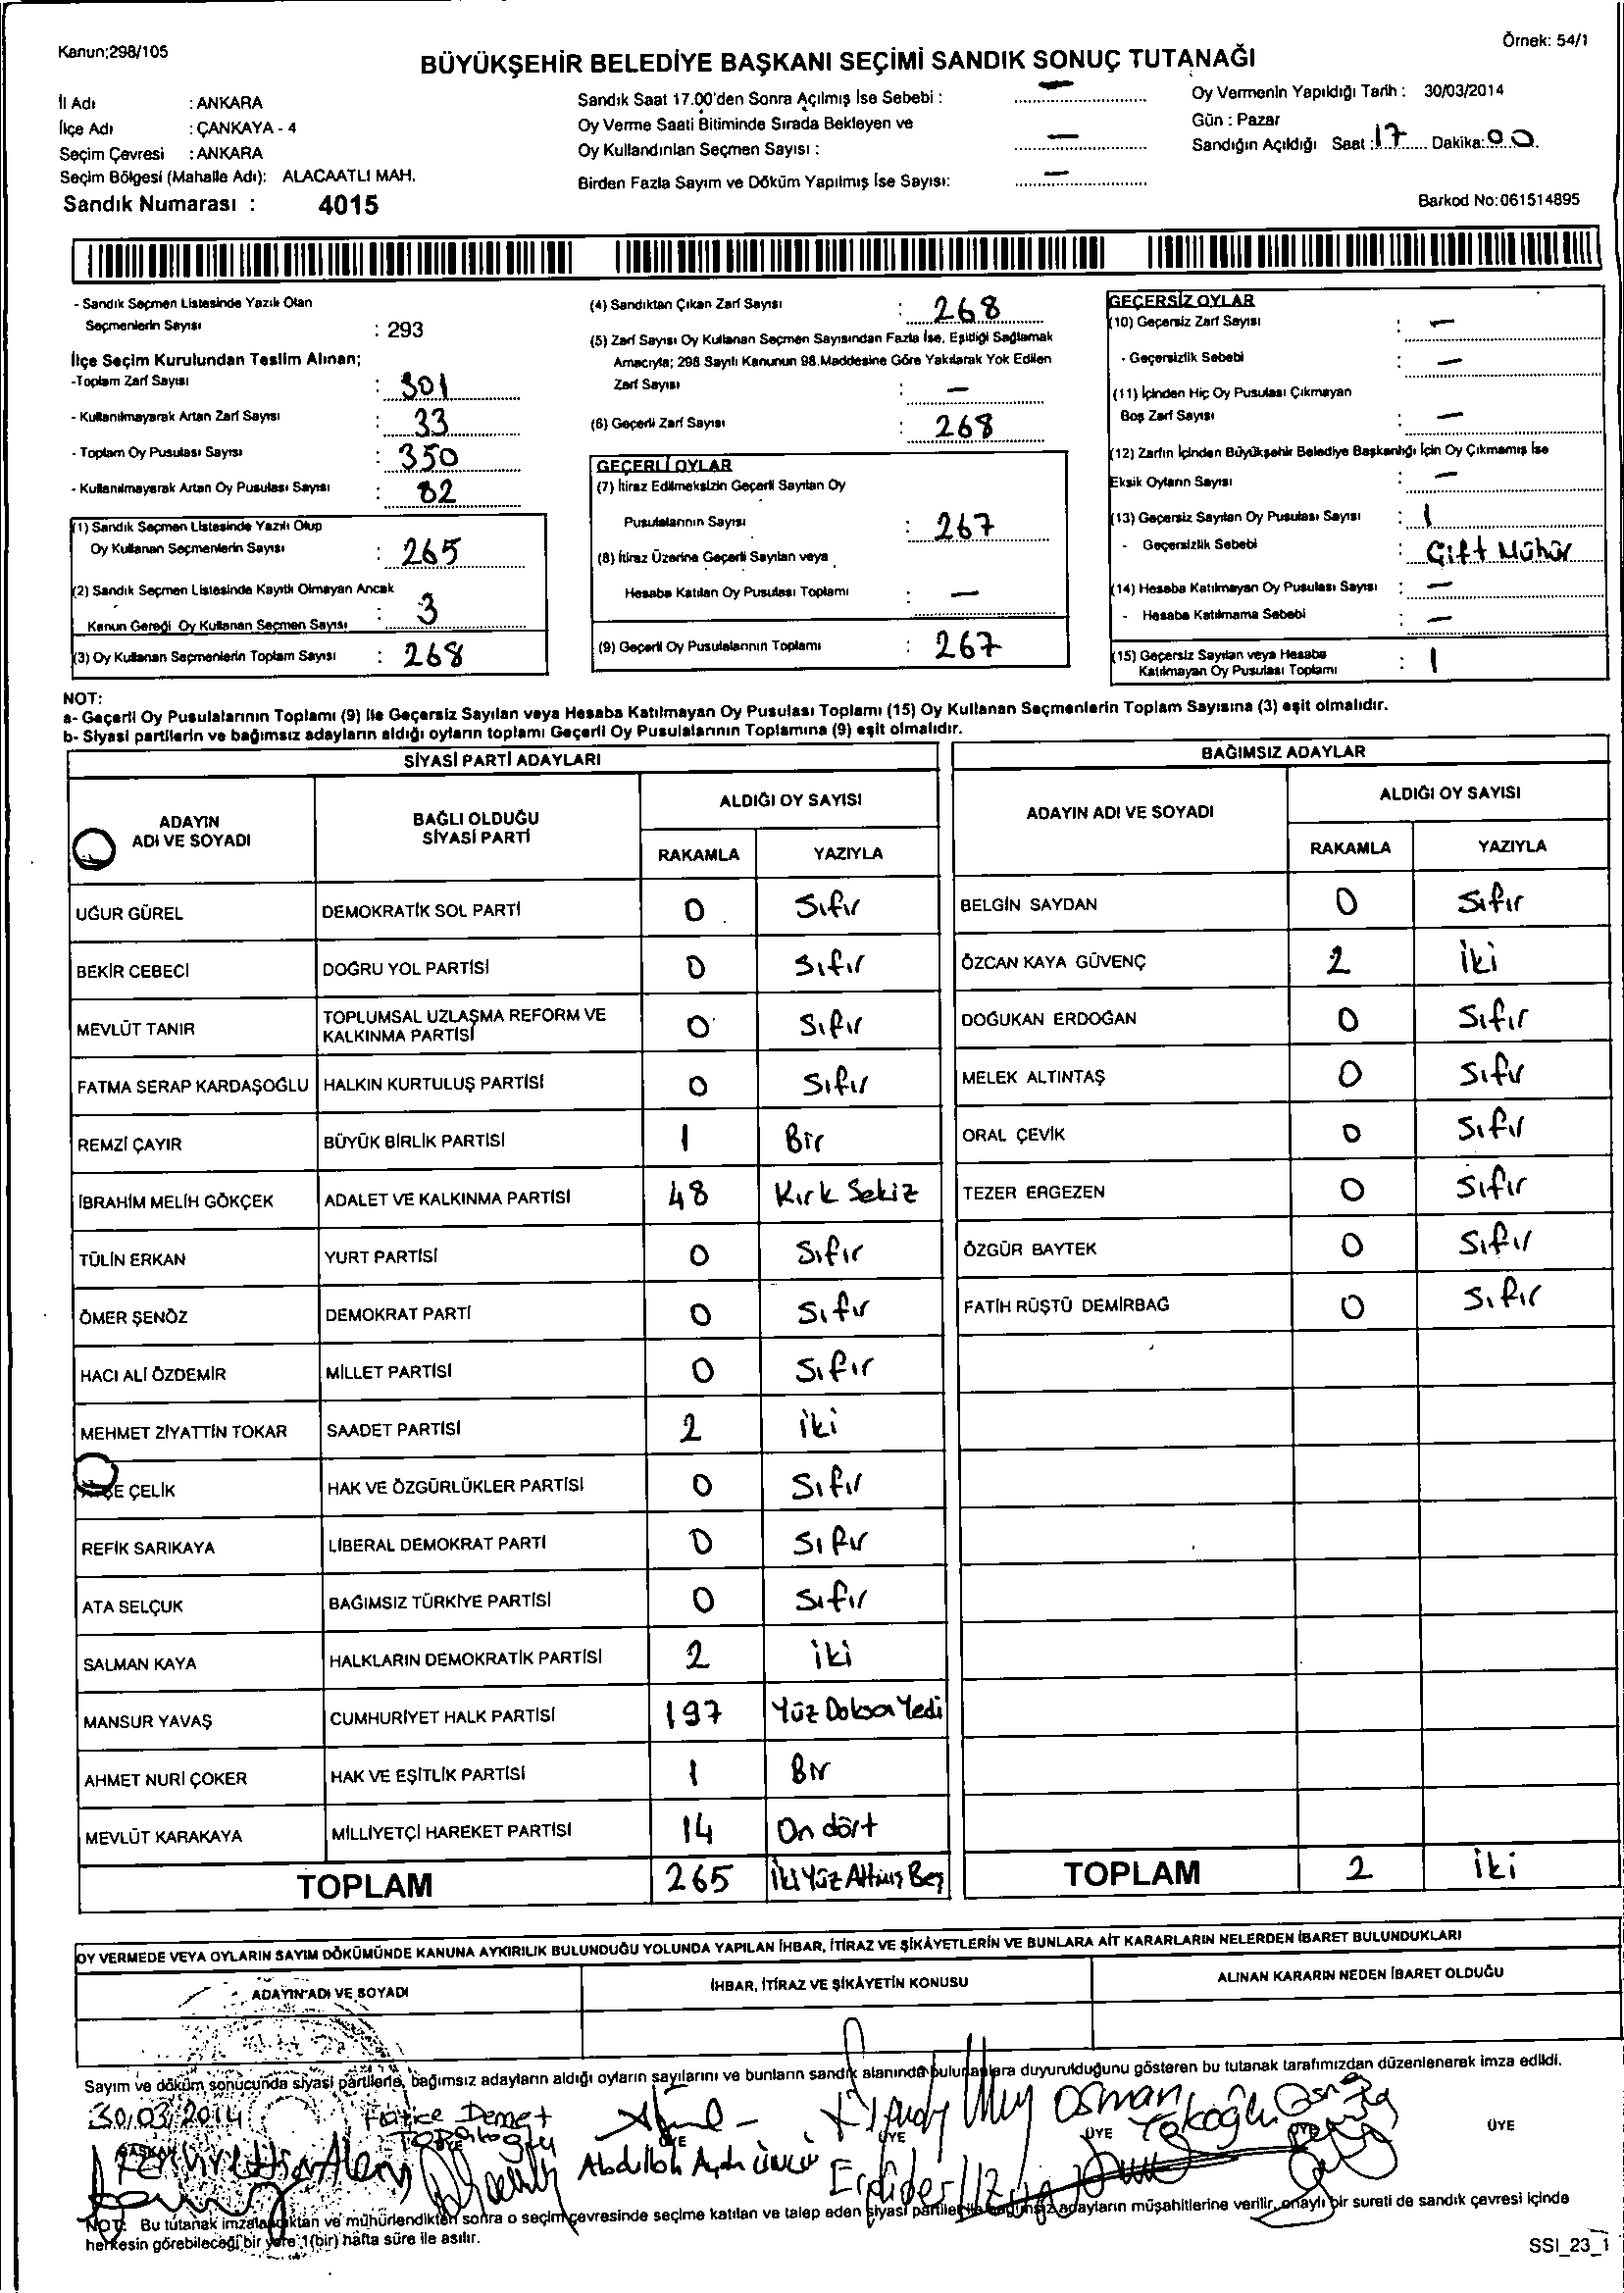 Kanun;298/105
Örnek: 54/1
BÜYÜKŞEHİR BELEDİYE BAŞKANI SEÇİMİ SANDIK SONUÇ TUTANAĞI
İl Adı : ANKARA
İlçe Adı : ÇANKAYA - 4
Seçim Çevresi : ANKARA
Seçim Bölgesi (Mahalle Adı): ALACAATLI MAH.
Sandık Numarası : 4015
Sandık Saat 17.00'den Sonra Açılmış İse Sebebi : —
Oy Verme Saati Bitiminde Sırada Bekleyen ve
Oy Kullandırılan Seçmen Sayısı : —
Birden Fazla Sayım ve Döküm Yapılmış İse Sayısı: —
Oy Vermenin Yapıldığı Tarih : 30/03/2014
Gün : Pazar
Sandığın Açıldığı Saat : 17 Dakika: 00
Barkod No:061514895
- Sandık Seçmen Listesinde Yazılı Olan
Seçmenlerin Sayısı : 293
İlçe Seçim Kurulundan Teslim Alınan;
-Toplam Zarf Sayısı : 301
- Kullanılmayarak Artan Zarf Sayısı : 33
- Toplam Oy Pusulası Sayısı : 350
- Kullanılmayarak Artan Oy Pusulası Sayısı : 82
(1) Sandık Seçmen Listesinde Yazılı Olup
Oy Kullanan Seçmenlerin Sayısı : 265
(2) Sandık Seçmen Listesinde Kayıtlı Olmayan Ancak
Kanun Gereği Oy Kullanan Seçmen Sayısı : 3
(3) Oy Kullanan Seçmenlerin Toplam Sayısı : 268
(4) Sandıktan Çıkan Zarf Sayısı : 268
(5) Zarf Sayısı Oy Kullanan Seçmen Sayısından Fazla İse, Eşitliği Sağlamak
Amacıyla; 298 Sayılı Kanunun 98.Maddesine Göre Yakılarak Yok Edilen
Zarf Sayısı : —
(6) Geçerli Zarf Sayısı : 268
GEÇERLİ OYLAR
(7) İtiraz Edilmeksizin Geçerli Sayılan Oy
Pusulalarının Sayısı : 267
(8) İtiraz Üzerine Geçerli Sayılan veya
Hesaba Katılan Oy Pusulası Toplamı : —
(9) Geçerli Oy Pusulalarının Toplamı : 267
GEÇERSİZ OYLAR
(10) Geçersiz Zarf Sayısı : —
- Geçersizlik Sebebi : —
(11) İçinden Hiç Oy Pusulası Çıkmayan
Boş Zarf Sayısı : —
(12) Zarfın İçinden Büyükşehir Belediye Başkanlığı İçin Oy Çıkmamış İse
Eksik Oyların Sayısı : —
(13) Geçersiz Sayılan Oy Pusulası Sayısı : 1
- Geçersizlik Sebebi : Çift Mühür
(14) Hesaba Katılmayan Oy Pusulası Sayısı : —
- Hesaba Katılmama Sebebi : —
(15) Geçersiz Sayılan veya Hesaba
Katılmayan Oy Pusulası Toplamı : 1
NOT:
a- Geçerli Oy Pusulalarının Toplamı (9) ile Geçersiz Sayılan veya Hesaba Katılmayan Oy Pusulası Toplamı (15) Oy Kullanan Seçmenlerin Toplam Sayısına (3) eşit olmalıdır.
b- Siyasi partilerin ve bağımsız adayların aldığı oyların toplamı Geçerli Oy Pusulalarının Toplamına (9) eşit olmalıdır.
SİYASİ PARTİ ADAYLARI
ADAYIN ADI VE SOYADI
BAĞLI OLDUĞU SİYASİ PARTİ
ALDIĞI OY SAYISI
RAKAMLA YAZIYLA
UĞUR GÜREL DEMOKRATİK SOL PARTİ 0 Sıfır
BEKİR CEBECİ DOĞRU YOL PARTİSİ 0 Sıfır
MEVLÜT TANIR TOPLUMSAL UZLAŞMA REFORM VE KALKINMA PARTİSİ 0 Sıfır
FATMA SERAP KARDAŞOĞLU HALKIN KURTULUŞ PARTİSİ 0 Sıfır
REMZİ ÇAYIR BÜYÜK BİRLİK PARTİSİ 1 Bir
İBRAHİM MELİH GÖKÇEK ADALET VE KALKINMA PARTİSİ 48 Kırk Sekiz
TÜLİN ERKAN YURT PARTİSİ 0 Sıfır
ÖMER ŞENÖZ DEMOKRAT PARTİ 0 Sıfır
HACI ALİ ÖZDEMİR MİLLET PARTİSİ 0 Sıfır
MEHMET ZİYATTİN TOKAR SAADET PARTİSİ 2 iki
ÇELİK HAK VE ÖZGÜRLÜKLER PARTİSİ 0 Sıfır
REFİK SARIKAYA LİBERAL DEMOKRAT PARTİ 0 Sıfır
ATA SELÇUK BAĞIMSIZ TÜRKİYE PARTİSİ 0 Sıfır
SALMAN KAYA HALKLARIN DEMOKRATİK PARTİSİ 2 iki
MANSUR YAVAŞ CUMHURİYET HALK PARTİSİ 197 Yüz Doksan Yedi
AHMET NURİ ÇOKER HAK VE EŞİTLİK PARTİSİ 1 Bir
MEVLÜT KARAKAYA MİLLİYETÇİ HAREKET PARTİSİ 14 On dört
TOPLAM 265 İki Yüz Altmış Beş
BAĞIMSIZ ADAYLAR
ADAYIN ADI VE SOYADI
ALDIĞI OY SAYISI
RAKAMLA YAZIYLA
BELGİN SAYDAN 0 Sıfır
ÖZCAN KAYA GÜVENÇ 2 iki
DOĞUKAN ERDOĞAN 0 Sıfır
MELEK ALTINTAŞ 0 Sıfır
ORAL ÇEVİK 0 Sıfır
TEZER ERGEZEN 0 Sıfır
ÖZGÜR BAYTEK 0 Sıfır
FATİH RÜŞTÜ DEMİRBAĞ 0 Sıfır
TOPLAM 2 iki
OY VERMEDE VEYA OYLARIN SAYIM DÖKÜMÜNDE KANUNA AYKIRILIK BULUNDUĞU YOLUNDA YAPILAN İHBAR, İTİRAZ VE ŞİKÂYETLERİN VE BUNLARA AİT KARARLARIN NELERDEN İBARET BULUNDUKLARI
ADAYIN ADI VE SOYADI
İHBAR, İTİRAZ VE ŞİKÂYETİN KONUSU
ALINAN KARARIN NEDEN İBARET OLDUĞU
Sayım ve döküm sonucunda siyasi partilerle, bağımsız adayların aldığı oyların sayılarını ve bunların sandık alanında bulunanlara duyurulduğunu gösteren bu tutanak tarafımızdan düzenlenerek imza edildi.
30/03/2014
Hatice Demet
Osman
Abdullah
BAŞKAN ÜYE ÜYE ÜYE ÜYE ÜYE
NOT: Bu tutanak imzalandıktan ve mühürlendikten sonra o seçim çevresinde seçime katılan ve talep eden siyasi partiler ile bağımsız adayların müşahitlerine verilir, onaylı bir sureti de sandık çevresi içinde
herkesin görebileceği bir yere 1(bir) hafta süre ile asılır.
SSI_23_1